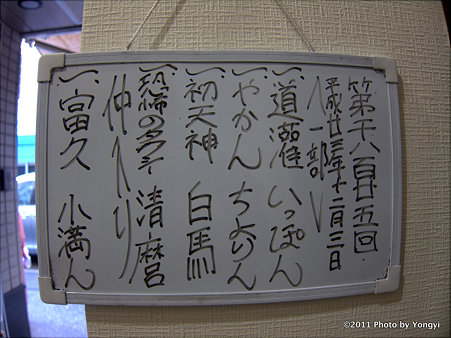 第千八百廿五回
平成廿三年十二月三日
(一部)
一、道灌 いっぽん
一、やかん ちよりん
一、初天神 白馬
一、恐怖のタクシー 清麿
仲入り
一、富久 小満ん
©2011 Photo by Yongyi